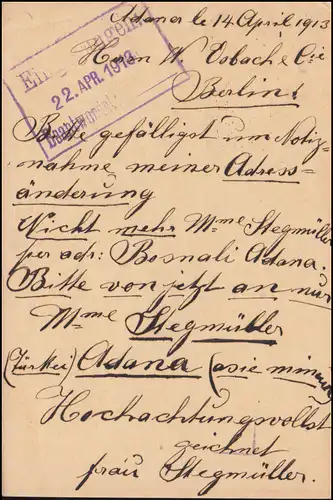 Adana le 14 April 1913
Eingegangen
22. APR. 1913
Beantwortet
Herrn W. Esbach & Cie
Berlin!
Bitte gefälligst um Notiz-
nahme meiner Adress-
änderung
Nicht mehr Mme Stegmüller
per adr: Bosnali Adana.
Bitte von jetzt an nur
Mme Stegmüller
(Türkei) Adana (asie mineure)
Hochachtungsvollst
zeichnet
frau Stegmüller.